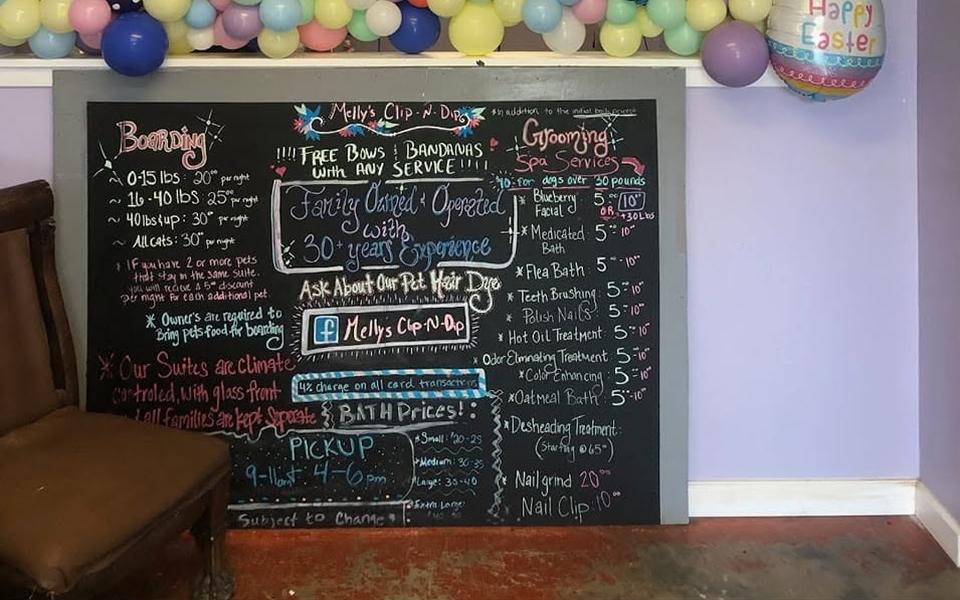 Happy
Easter
Melly's Clip-N-Dip
Boarding
~ 0-15 lbs: 20⁰⁰ per night
~ 16-40 lbs: 25⁰⁰ per night
~ 40lbs+up: 30⁰⁰ per night
~ All cats: 30⁰⁰ per night
* If you have 2 or more pets
that stay in the same suite.
you will recieve a 5⁰⁰ discount
per night for each additional pet.
* Owner's are required to
Bring pets food for boarding
* Our Suites are climate
controled, with glass front
all families are kept Seperate
!!!! FREE BOWS & BANDANAS
with ANY SERVICE !!!!
Family Owned & Operated
with
30+ years Experience
Ask About Our Pet Hair Dye
f Melly's Clip-N-Dip
4% charge on all card transactions
BATH Prices!:
PICKUP
9-11am 4-6pm
Subject to Change
*Small: $20-25
*Medium: 30-35
*Large: 35-40
*Extra Large:
*In addition to the initial bath prices*
Grooming
Spa Services
for dogs over 30 pounds
* Blueberry Facial 5⁰⁰ OR 10⁰⁰ +30lbs
* Medicated Bath 5⁰⁰-10⁰⁰
* Flea Bath: 5⁰⁰-10⁰⁰
* Teeth Brushing: 5⁰⁰-10⁰⁰
* Polish Nails: 5⁰⁰-10⁰⁰
* Hot Oil Treatment: 5⁰⁰-10⁰⁰
* Odor Elminating Treatment: 5⁰⁰-10⁰⁰
* Color Enhancing: 5⁰⁰-10⁰⁰
* Oatmeal Bath: 5⁰⁰-10⁰⁰
* Desheading Treatment:
(Starting @ 65⁰⁰)
* Nail grind 20⁰⁰
Nail Clip: 10⁰⁰